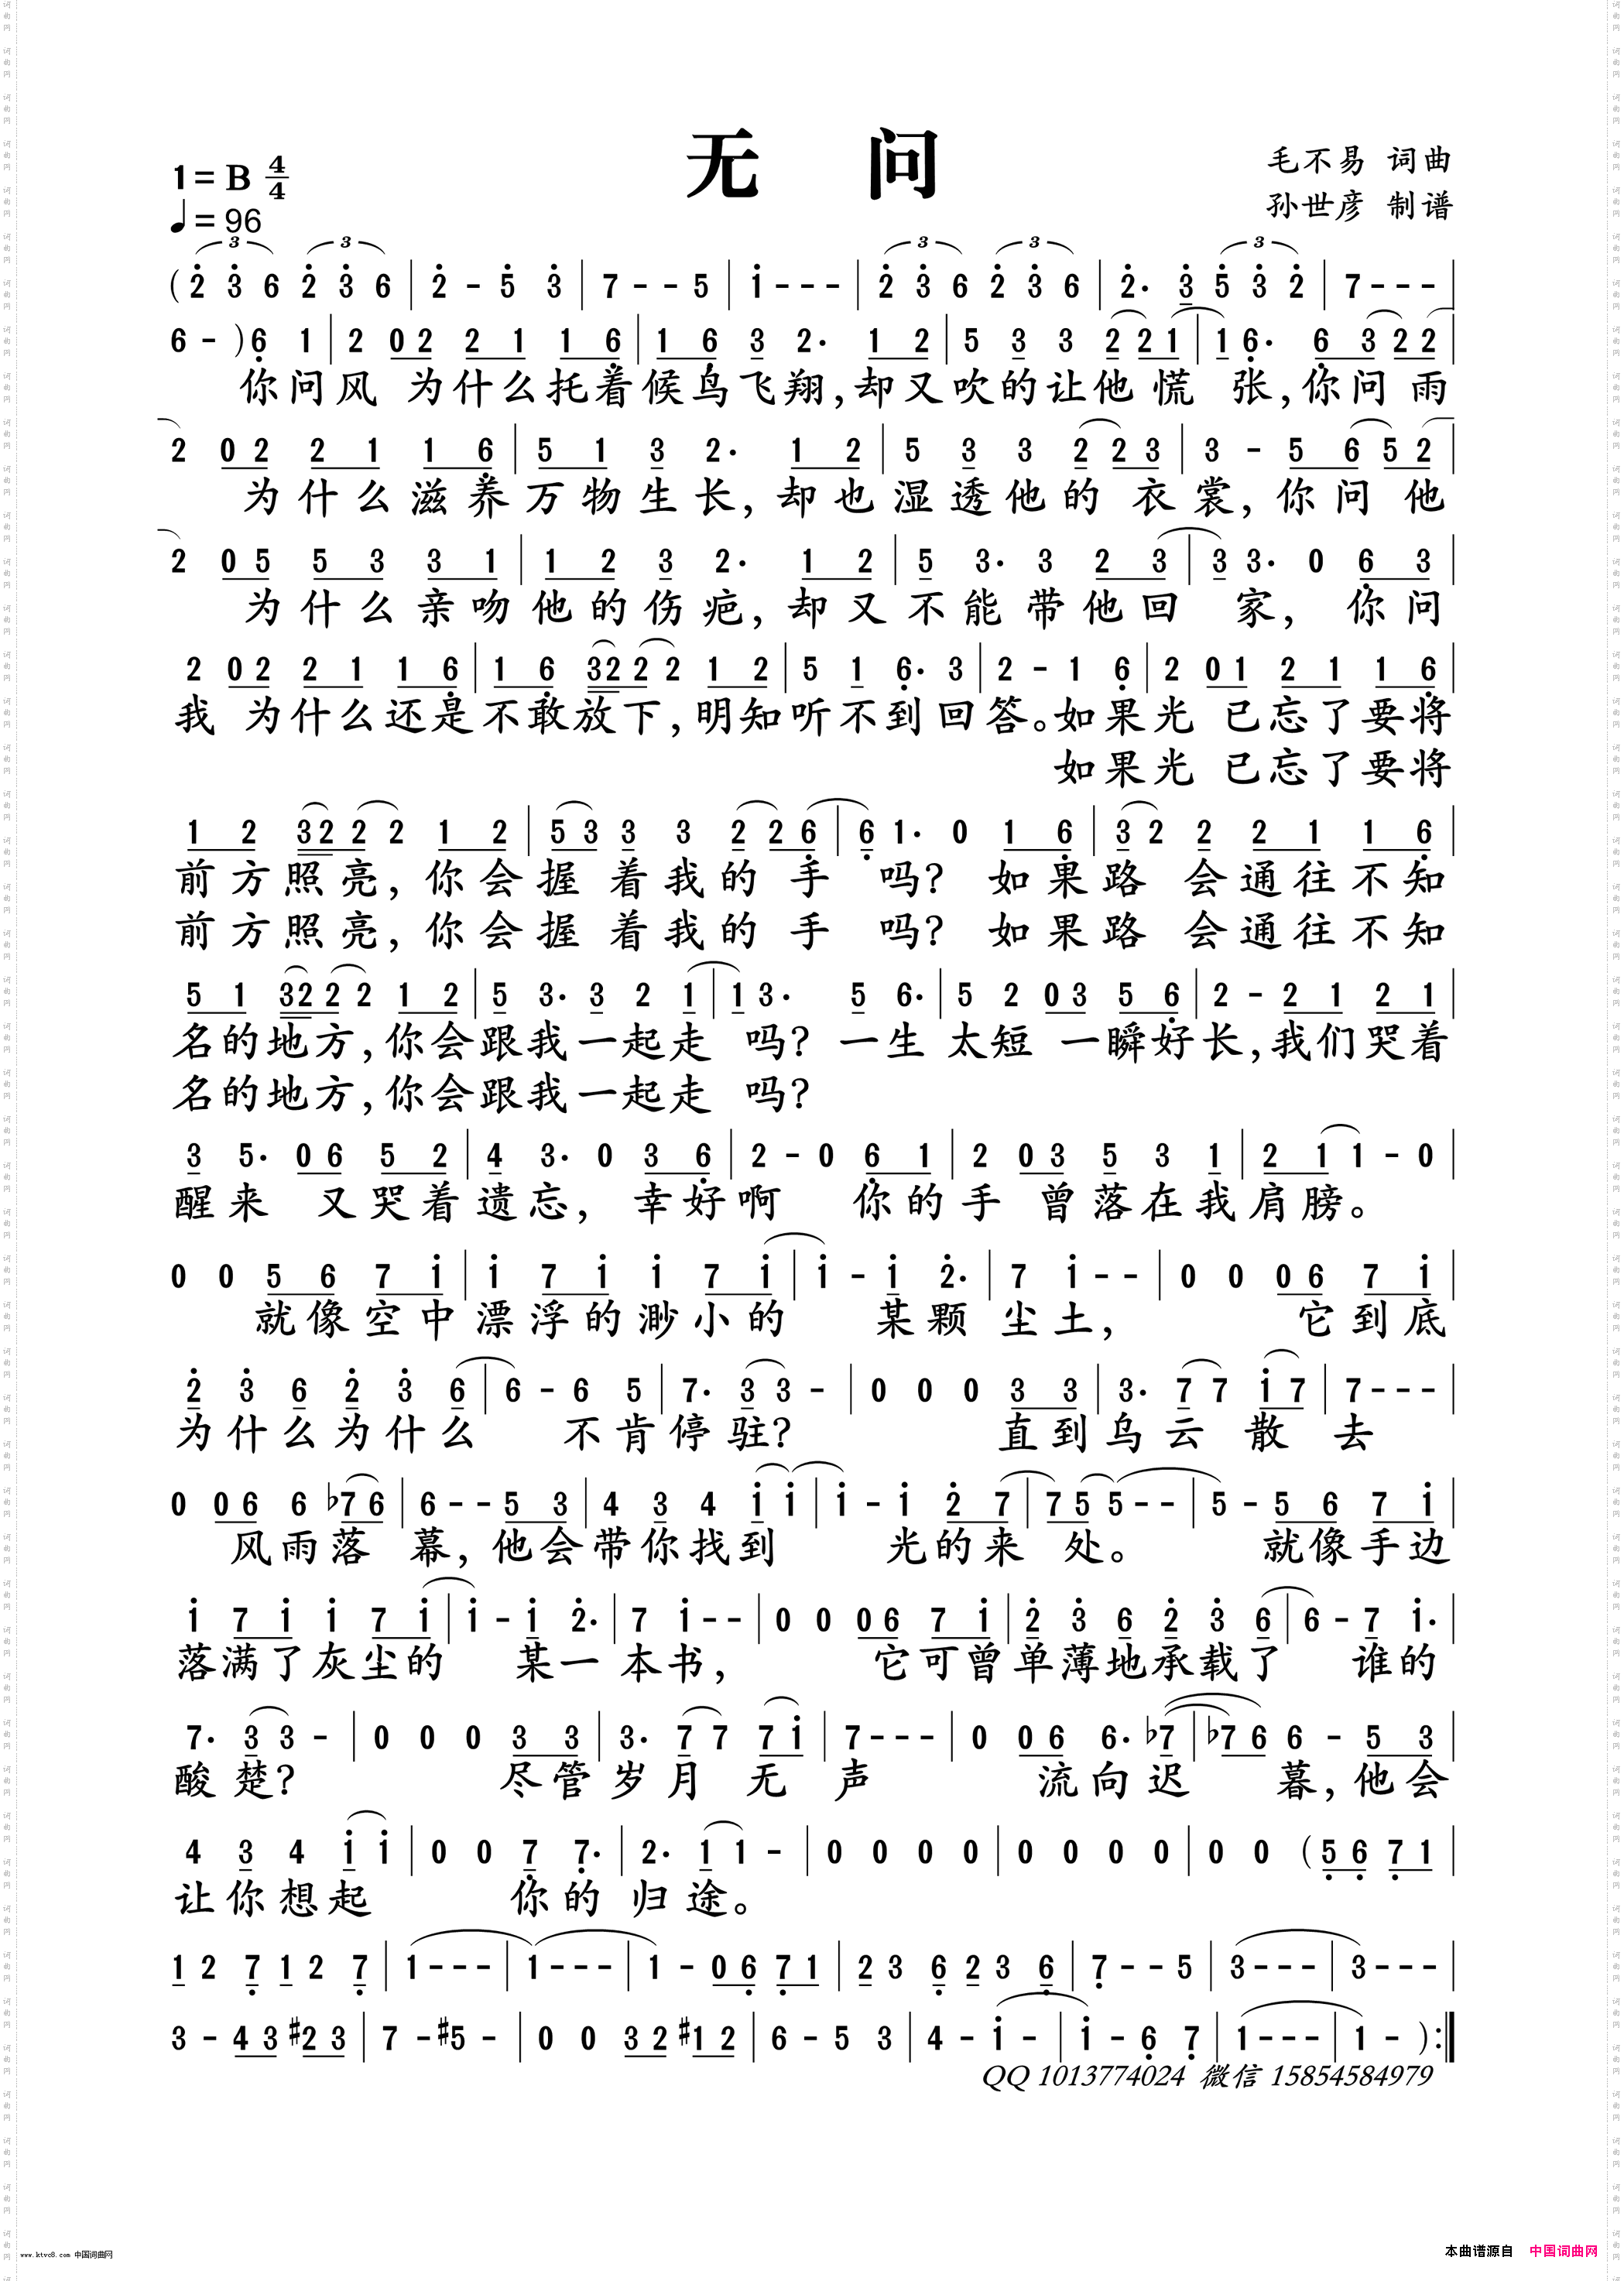 无 问
1=B 4/4
♩=96
毛不易 词曲
孙世彦 制谱
(2 3 6 2 3 6 | 2 - 5 3 | 7 - - 5 | 1 - - - | 2 3 6 2 3 6 | 2. 3 5 3 2 | 7 - - - |
6 - ) 6 1 | 2 0 2 2 1 1 6 | 1 6 3 2. 1 2 | 5 3 3 2 2 1 | 1 6. 6 3 2 2 |
你问风 为什么托着候鸟飞翔,却又吹的让他慌 张,你问 雨
2 0 2 2 1 1 6 | 5 1 3 2. 1 2 | 5 3 3 2 2 3 | 3 - 5 6 5 2 |
为什么滋养万物生长,却也湿透他的 衣裳,你问 他
2 0 5 5 3 3 1 | 1 2 3 2. 1 2 | 5 3. 3 2 3 | 3 3. 0 6 3 |
为什么亲吻他的伤疤,却又不能带他回 家, 你问
2 0 2 2 1 1 6 | 1 6 3 2 2 2 1 2 | 5 1 6. 3 | 2 - 1 6 | 2 0 1 2 1 1 6 |
我 为什么还是不敢放下,明知听不到回答。如果光 已忘了要将
如果光 已忘了要将
1 2 3 2 2 2 1 2 | 5 3 3 3 2 2 6 | 6 1. 0 1 6 | 3 2 2 2 1 1 6 |
前方照亮,你会握 着我的 手 吗? 如果路 会通往不知
前方照亮,你会握 着我的 手 吗? 如果路 会通往不知
5 1 3 2 2 2 1 2 | 5 3. 3 2 1 | 1 3. 5 6. | 5 2 0 3 5 6 | 2 - 2 1 2 1 |
名的地方,你会跟我一起走 吗? 一生 太短 一瞬好长,我们哭着
名的地方,你会跟我一起走 吗?
3 5. 0 6 5 2 | 4 3. 0 3 6 | 2 - 0 6 1 | 2 0 3 5 3 1 | 2 1 1 - 0 |
醒来 又哭着遗忘, 幸好啊 你的手 曾落在我肩膀。
0 0 5 6 7 1 | 1 7 1 1 7 1 | 1 - 1 2. | 7 1 - - | 0 0 0 6 7 1 |
就像空中漂浮的渺小的 某颗尘土, 它到底
2 3 6 2 3 6 | 6 - 6 5 | 7. 3 3 - | 0 0 0 3 3 | 3. 7 7 1 7 | 7 - - - |
为什么为什么 不肯停驻? 直到乌云 散 去
0 0 6 6 ♭7 6 | 6 - - 5 3 | 4 3 4 1 1 | 1 - 1 2 7 | 7 5 5 - - | 5 - 5 6 7 1 |
风雨落 幕,他会带你找到 光的来 处。 就像手边
1 7 1 1 7 1 | 1 - 1 2. | 7 1 - - | 0 0 0 6 7 1 | 2 3 6 2 3 6 | 6 - 7 1. |
落满了灰尘的 某一本书, 它可曾单薄地承载了 谁的
7. 3 3 - | 0 0 0 3 3 | 3. 7 7 7 1 | 7 - - - | 0 0 6 6. ♭7 | ♭7 6 6 - 5 3 |
酸楚? 尽管岁月 无 声 流向迟 暮,他会
4 3 4 1 1 | 0 0 7 7. | 2. 1 1 - | 0 0 0 0 | 0 0 0 0 | 0 0 (5 6 7 1 |
让你想起 你的归途。
1 2 7 1 2 7 | 1 - - - | 1 - - - | 1 - 0 6 7 1 | 2 3 6 2 3 6 | 7 - - 5 | 3 - - - | 3 - - - |
3 - 4 3 #2 3 | 7 - #5 - | 0 0 3 2 #1 2 | 6 - 5 3 | 4 - 1 - | 1 - 6 7 | 1 - - - | 1 - ) :‖
QQ 1013774024 微信 15854584979
www.ktvc8.com 中国词曲网
本曲谱源自 中国词曲网